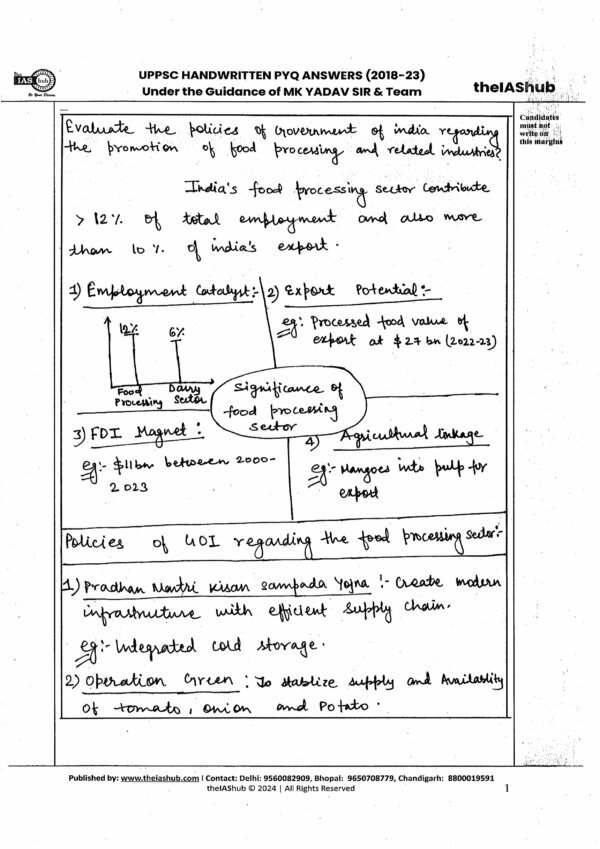 The
IAS hub
Be Your Dream
UPPSC HANDWRITTEN PYQ ANSWERS (2018-23)
Under the Guidance of MK YADAV SIR & Team
theIAShub
Candidates
must not
write on
this margins
Evaluate the policies of Government of india regarding
the promotion of food processing and related industries?
India's food processing sector contribute
> 12% of total employment and also more
than 10 % of india's export.
1) Employment Catalyst:-
12%
6%
Food
Processing
Dairy
Sector
2) Export Potential:-
eg: Processed food value of
export at $27 bn (2022-23)
Significance of
food processing
sector
3) FDI Magnet:
eg:- $11bn between 2000-
2023
4) Agricultural linkage
eg:- Mangoes into pulp for
export
Policies of GOI regarding the food processing sector:-
1) Pradhan Mantri Kisan Sampada Yojna :- Create modern
infrastructure with efficient supply chain.
eg:- Integrated cold storage.
2) Operation Green : To stablize supply and Availablity
of tomato, onion and Potato.
Published by: www.theiashub.com | Contact: Delhi: 9560082909, Bhopal: 9650708779, Chandigarh: 8800019591
theIAShub © 2024 | All Rights Reserved
1